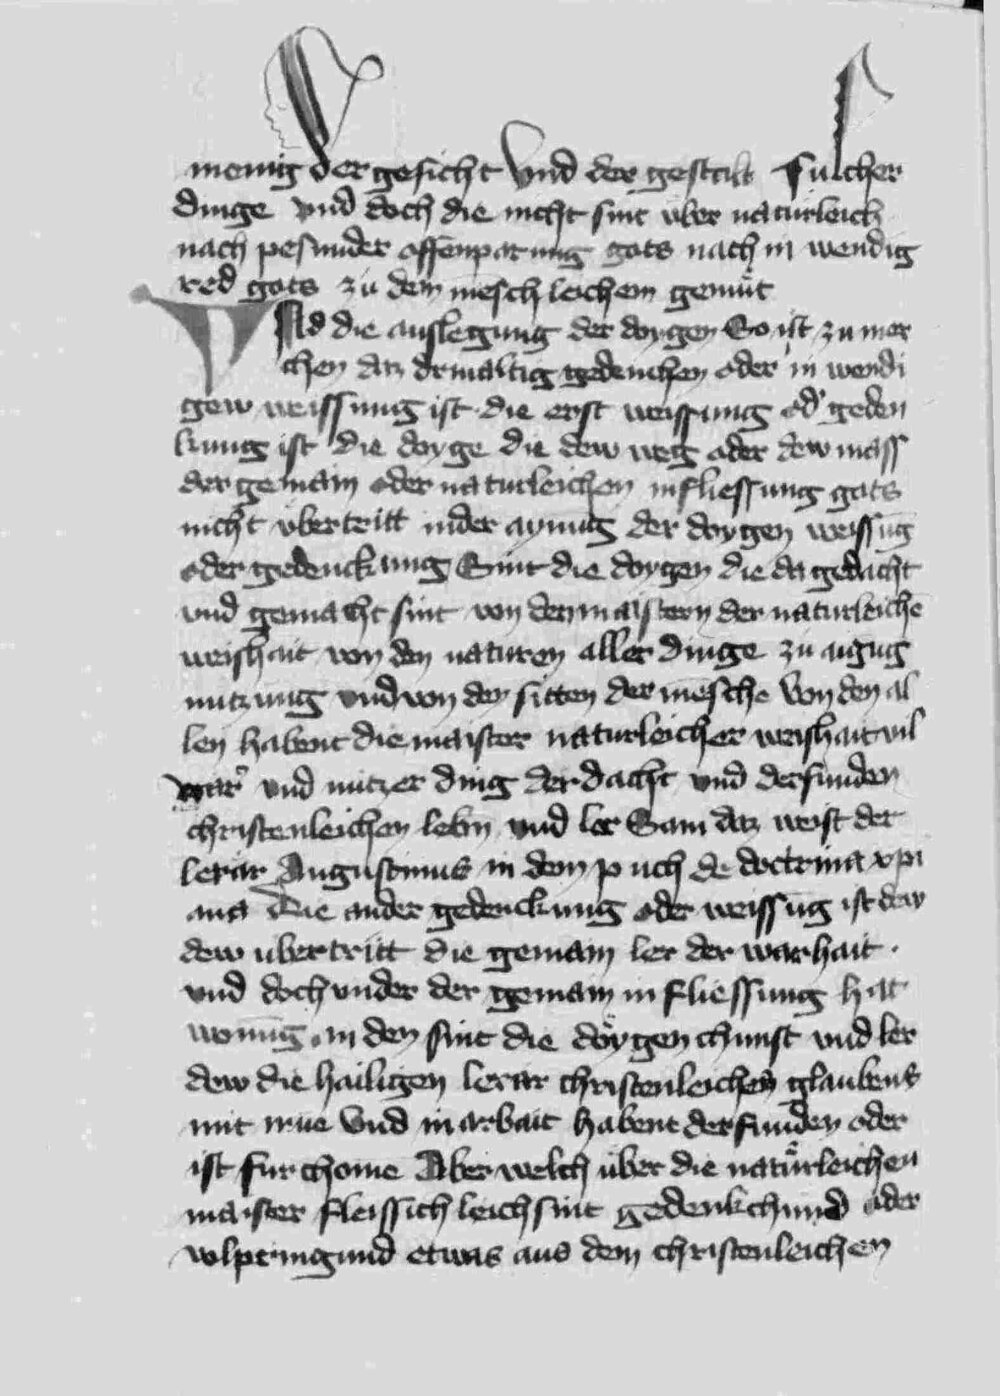 menig der gesicht Vnd der gestalt sulcher
dinge vnd doch die nicht sint vber naturleich
nach pesunder offenparung gots nach in wendig
red gots zu dem mēschleichem gemüt
VNd die auslegung der doygen So ist zu mer
chen daz drinaltig gedenchen oder in wendi
gew weissung ist die erst weissung od' geden
kung ist die doyge die dew weg oder dew mass
der gemain oder naturleichen in fliessung gots
nicht vbertritt in der aynung der doygen weissūg
oder gedenckung Sint die doygen die da gedacht
vnd gemacht sint von den maistern der naturleichē
weishait von den naturen aller dinge zu aigūg
nutzung vnd von den sitten der mēsche Von den al
len habent die maister naturleicher weishait vil
war' vnd nutzer ding derdacht vnd derfunden
christenleichen lebn vnd ler Sam daz weist der
lerar Augustinus in dem puch de doctrina xpi
ana Die ander gedenckung oder weissūg ist dew
dew vbertritt die gemain ler der warhait .
vnd doch vnder der gemain in fliessung hat
wonūg in den sint die doygen chunst vnd ler
dew die hailigen lerar christenleichen glaubens
mit mue Vnd in arbait habent derfunden oder
ist fur chome Aber welch vber die natürleichen
maister fleissichleich sint gedenkchund oder
volpringund etwas aus dem christenleichen